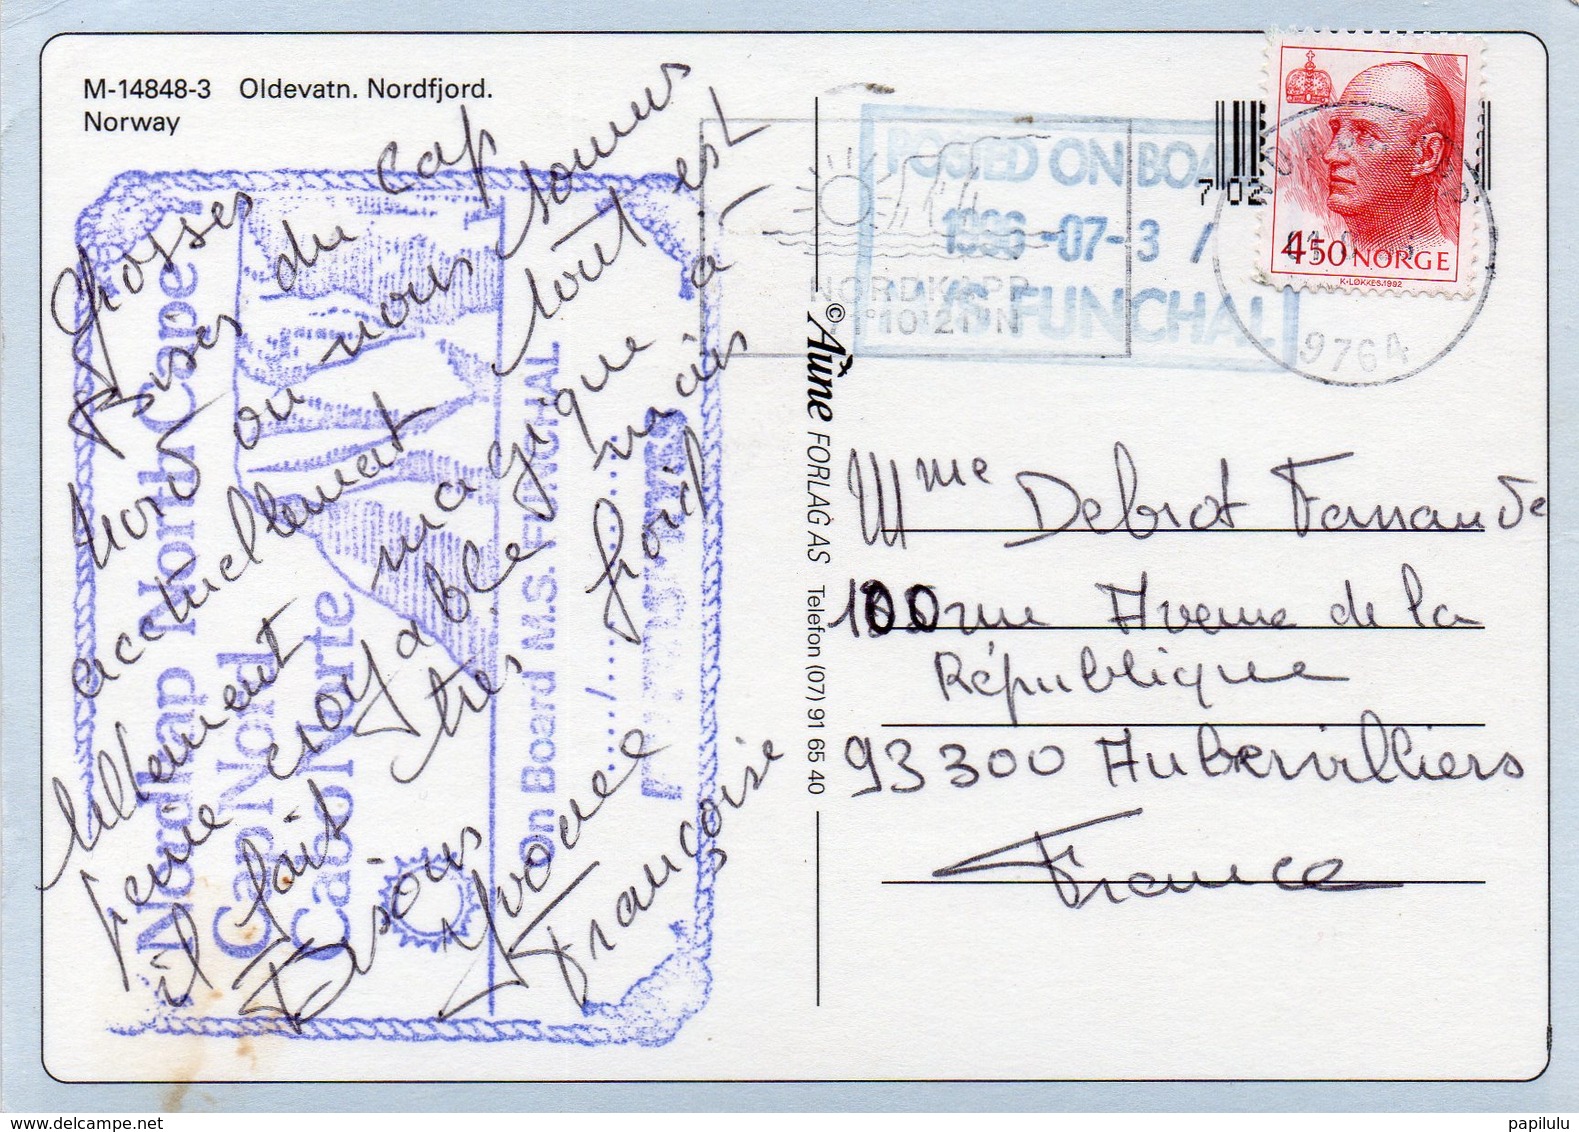 M-14848-3 Oldevatn. Nordfjord.
Norway
Grosses
Bises du Cap
Nord ou nous sommes
actuellement tout est
tellement magique à
peine croyable mais
il fait très froid
Bisous
Yvonne
Françoise
Nordkap North Cape
Cap Nord
Cabo Norte
On Board M.S. FUNCHAL
© Aune FORLAG AS Telefon (07) 91 65 40
POSTED ON BOA
1996-07-3 /
M/S FUNCHAL
NORDKAPP
71°10'21"N
9764
702
450 NORGE
K·LØKKES.1992
Mme Debrot Fernande
100 rue Avenue de la
République
93300 Aubervilliers
France
papilulu